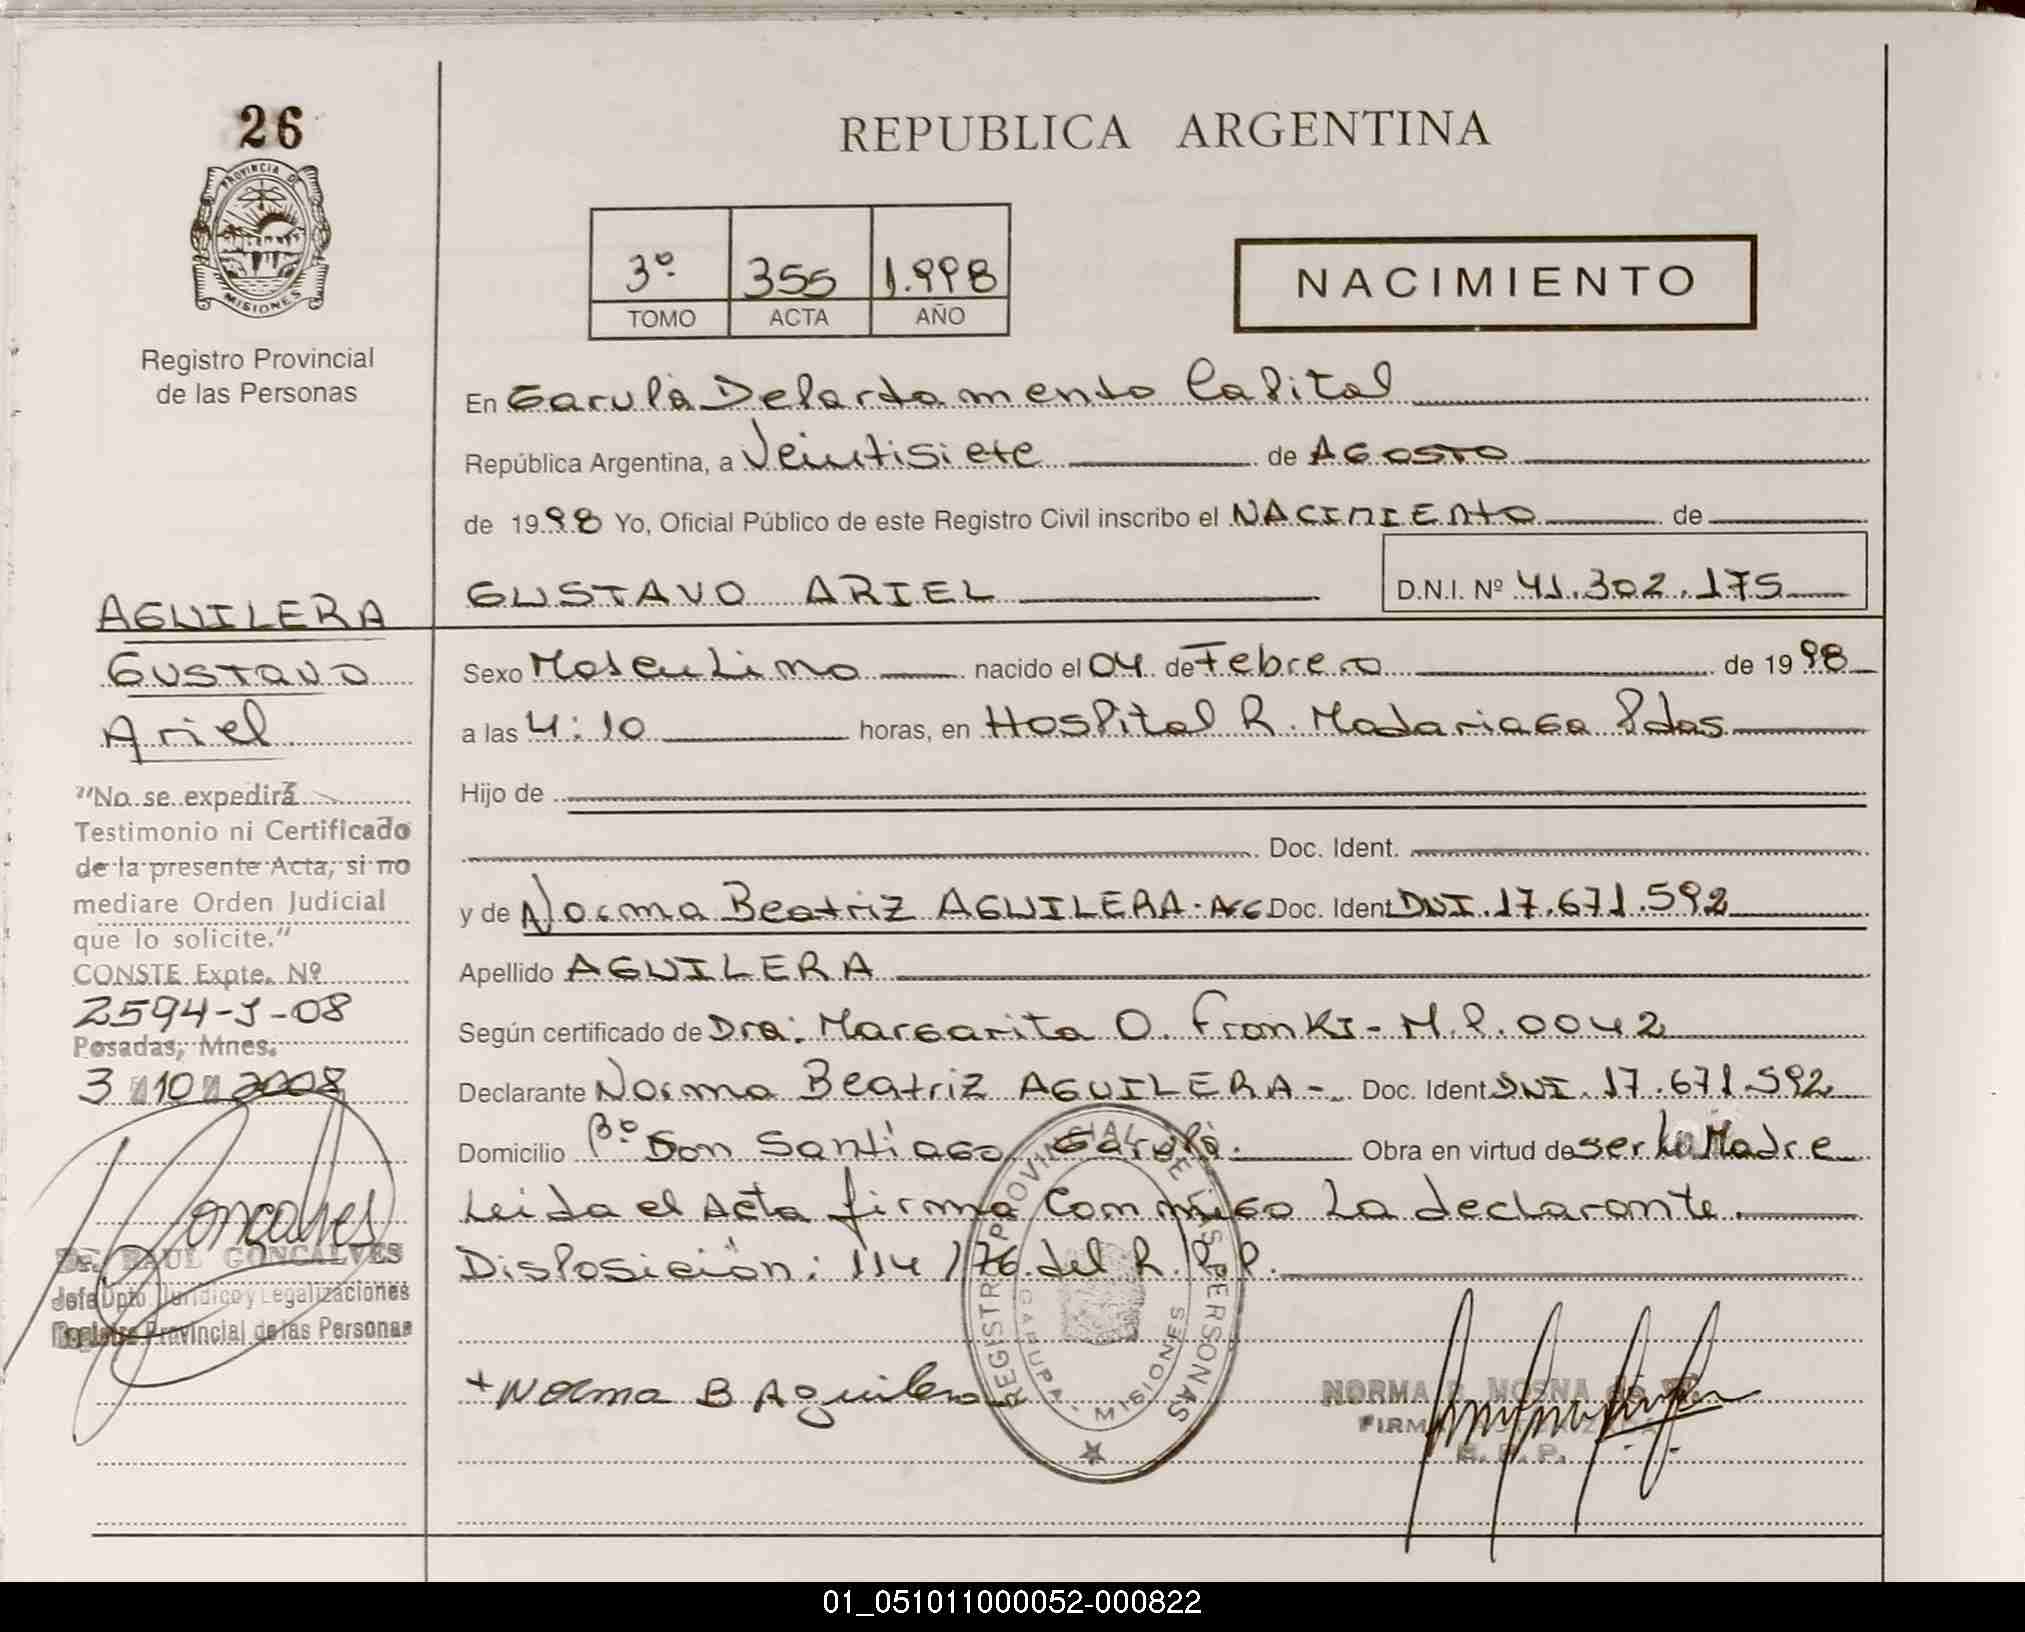 26
REPUBLICA ARGENTINA
PROVINCIA DE
MISIONES
Registro Provincial
de las Personas
3º 355 1.998
TOMO ACTA AÑO
NACIMIENTO
En Garupá Departamento Capital
República Argentina, a Veintisiete de AGOSTO
de 1998 Yo, Oficial Público de este Registro Civil inscribo el NACIMIENTO de
GUSTAVO ARIEL D.N.I. Nº 41.302.175
AGUILERA
GUSTAVO
Ariel
Sexo Masculino nacido el 04 de Febrero de 1998
a las 4:10 horas, en Hospital R. Madariaga Pdas
Hijo de
Doc. Ident.
y de Norma Beatriz AGUILERA- Doc. Ident DNI.17.671.592
Apellido AGUILERA
Según certificado de Dra: Margarita O. Fronki- M.P.0042
Declarante Norma Beatriz AGUILERA- Doc. Ident DNI. 17.671.592
Domicilio Bº Don Santiago Garupá. Obra en virtud de ser La Madre
Leida el Acta firma Conmigo La declarante.
Disposición: 114/76 del R.P.P.
"No se expedirá
Testimonio ni Certificado
de la presente Acta, si no
mediare Orden Judicial
que lo solicite."
CONSTE Expte. Nº
2594-J-08
Posadas, Mnes.
3 10 2008
Goncalves
Dr. RAUL GONCALVES
Jefe Dpto. Jurídico y Legalizaciones
Registro Provincial de las Personas
+ Norma B Aguilera
REGISTRO PROVINCIAL DE LAS PERSONAS
GARUPA - MISIONES
NORMA B. MOSNA de
FIRMA AUTORIZADA
R. P. P.
01_051011000052-000822